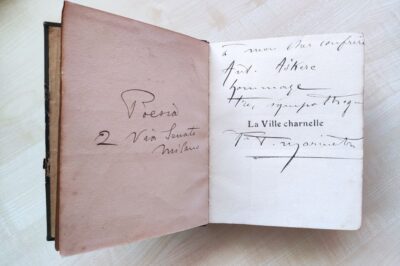 Poesia
2 Via Senato
Milano
à mon cher confrère
Ant. Aškerc
hommage
très sympathique
La Ville charnelle
F. T. Marinetti